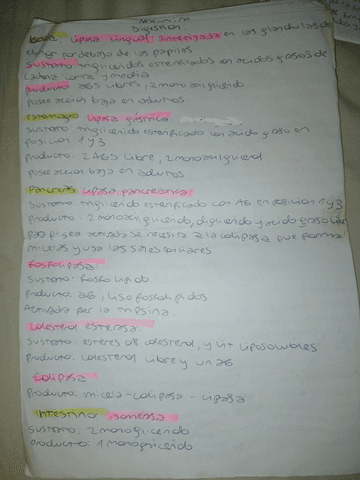 Digestion
boca: lipasa lingual sintetizada en las glandulas de
por debajo de las papilas
Sustrato: trigliceridos esterificados en acidos grasos de
cadena corta y media
Producto: AGS libres, 2 monoacilglicerol
posee accion baja en adultos
Estomago lipasa gastrica
Sustrato: triglicerido esterificado con acido graso en
posicion 1 y 3
Producto: 2 AGS libre, 2 monoacilglicerol
Posee accion baja en adultos
Pancreas lipasa pancreatica
Sustrato: triglicerido esterificado con AG en posicion 1 y 3
Producto: 2 monoacilglicerido, diglicerido y acido graso libre
para ser activada se necesita a la colipasa que forma
micelas y usa las sales biliares
Fosfolipasa
Sustrato: fosfolipido
Producto: AG, lisofosfolipidos
Activada por la tripsina
Colesterol esterasa
Sustrato: esteres de colesterol, y vit liposolubles
Producto: colesterol libre y un AG
Colipasa
Producto: micela - colipasa - lipasa
Intestino: isomerasa
Sustrato: 2 monoglicerido
Producto: 1 monoglicerido